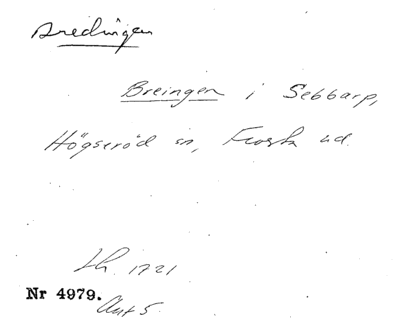 Bredingen
Breingen i Sebbarp,
Högseröd sn, Frosta hd.
Lh. 1721
Nr 4979.
Ant 5.